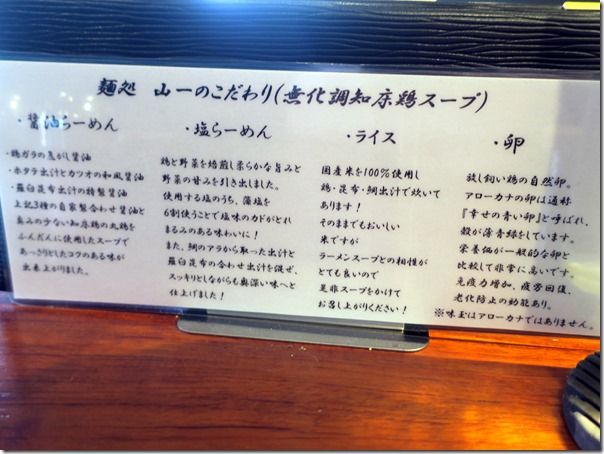 麺処 山一のこだわり(無化調知床鶏スープ)
・醤油らーめん
・鶏ガラの香がし醤油
・ホタテ出汁とカツオの和風醤油
・羅臼昆布出汁の特製醤油
上記3種の自家製合わせ醤油と
臭みの少ない知床鶏の丸鶏を
ふんだんに使用したスープで
あっさりとしたコクのある味が
出来上がりました。
・塩らーめん
鶏と野菜を焙煎し柔らかな旨みと
野菜の甘みを引き出しました。
使用する塩のうち、藻塩を
6割使うことで塩味のカドがとれ
まるみのある味わいに!
また、鯛のアラから取った出汁と
羅臼昆布の合わせ出汁を混ぜ、
スッキリとしながらも奥深い味へと
仕上げました!
・ライス
国産米を100%使用し
鶏・昆布・鯛出汁で炊いて
あります!
そのままでもおいしい
米ですが
ラーメンスープとの相性が
とても良いので
是非スープをかけて
お召し上がりください!
・卵
放し飼い鶏の自然卵。
アローカナの卵は通称
『幸せの青い卵』と呼ばれ、
殻が薄青緑をしています。
栄養価が一般的な卵と
比較して非常に高いです。
免疫力増加、疲労回復、
老化防止の効能あり。
※味玉はアローカナではありません。